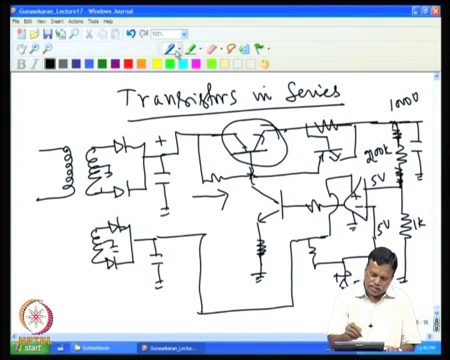 Gunasekaran_Lecture17 - Windows Journal
File Edit View Insert Actions Tools Help
100%
B I
Transistors in Series
1000
+
200k
5V
5V
1k
NPTEL
start
Gunasekaran
Gunasekaran_Lectur...